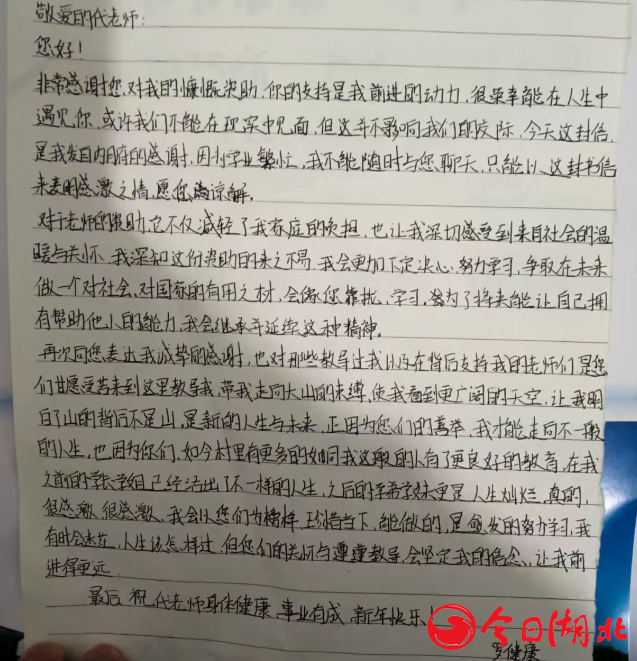 敬爱的代老师：
您好！
非常感谢您对我的慷慨资助，你的支持是我前进的动力，很荣幸能在人生中
遇见你，或许我们不能在现实中见面，但这并不影响我们的交际，今天这封信
是我发自内府的感谢，因为学业繁忙，我不能随时与您聊天，只能以这封书信
来表明感激之情，愿您谅解。
对于老师的资助，它不仅减轻了我家庭的负担，也让我深切感受到来自社会的温
暖与关怀。我深知这份资助的来之不易，我会更加下定决心，努力学习，争取在未来
做一个对社会、对国家的有用之材，会像您靠拢，学习，为了将来能让自己拥
有帮助他人的能力，我会继承并延续这种精神。
再次向您表达我诚挚的感谢，也对那些教导过我以及在背后支持我的老师们，是您
们甘愿受苦来到这里教导我，带我走向大山的束缚，使我看到更广阔的天空，让我明
白了山的背后不是山，是新的人生与未来，正因为您们的善举，我才能走向不一般
的人生，也因为你们，如今村里有更多的如同我这般的人有了更良好的教育，在我
之前的学长学姐已经活出了不一样的人生，之后的学弟学妹更是人生灿烂，真的，
很感激，很感激，我会以您们为榜样，珍惜当下，能做的，是奋发的努力学习，我
有时会迷茫，人生该怎样过，但您们的关怀与谆谆教导，会坚定我的信念，让我前
进得更远。
最后 祝代老师身体健康 事业有成 新年快乐！
罗健康
今日湖北